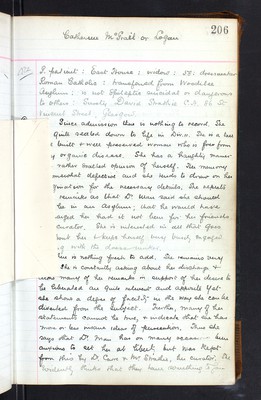 206
Catherine McPhail or Logan
P. patient: East House: widow: 58: dressmaker
Roman Catholic: transferred from Woodilee
Asylum: is not Epileptic suicidal or dangerous
to others: Curator David Strathie C.A. 
Vincent Street, Glasgow.
Since admission there is nothing to record. She
quite settled down to life in Div. She is a
built & well preserved woman who is free from
organic disease. She has a haughty manner
rather exalted opinion of herself. Her memory
somewhat defective and she tends to draw on her
for the necessary details. She repeats
remarks as that Dr. Marr said she should
be in an Asylum; that he would have
her had it not been for her friends
curator. She is interested in all that goes
but she keeps herself busy being engaged
with the dressmaker.
is nothing fresh to add. She remains very
She is constantly asking about her discharge &
many of her remarks in support of her desire to
be liberated are quite relevant and apparently yet
she shows a degree of facility in the way she can be
diverted from the subject. Further many of her
statements cannot be true, & indicate that she has
more or less insane ideas of persecution. Thus she
says that Dr. Marr has on many occasions been
anxious to set her at liberty but was kept
from this by Dr. Carre & Mr Strathie, her curator. She
evidently thinks that they have something to gain